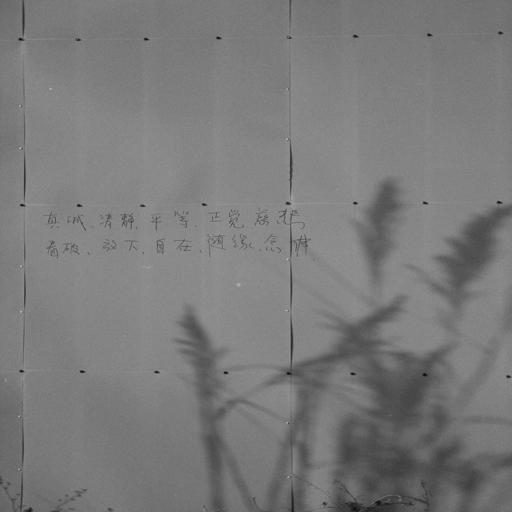 真诚、清静、平等、正觉、慈悲、
看破、放下、自在、随缘、念佛.